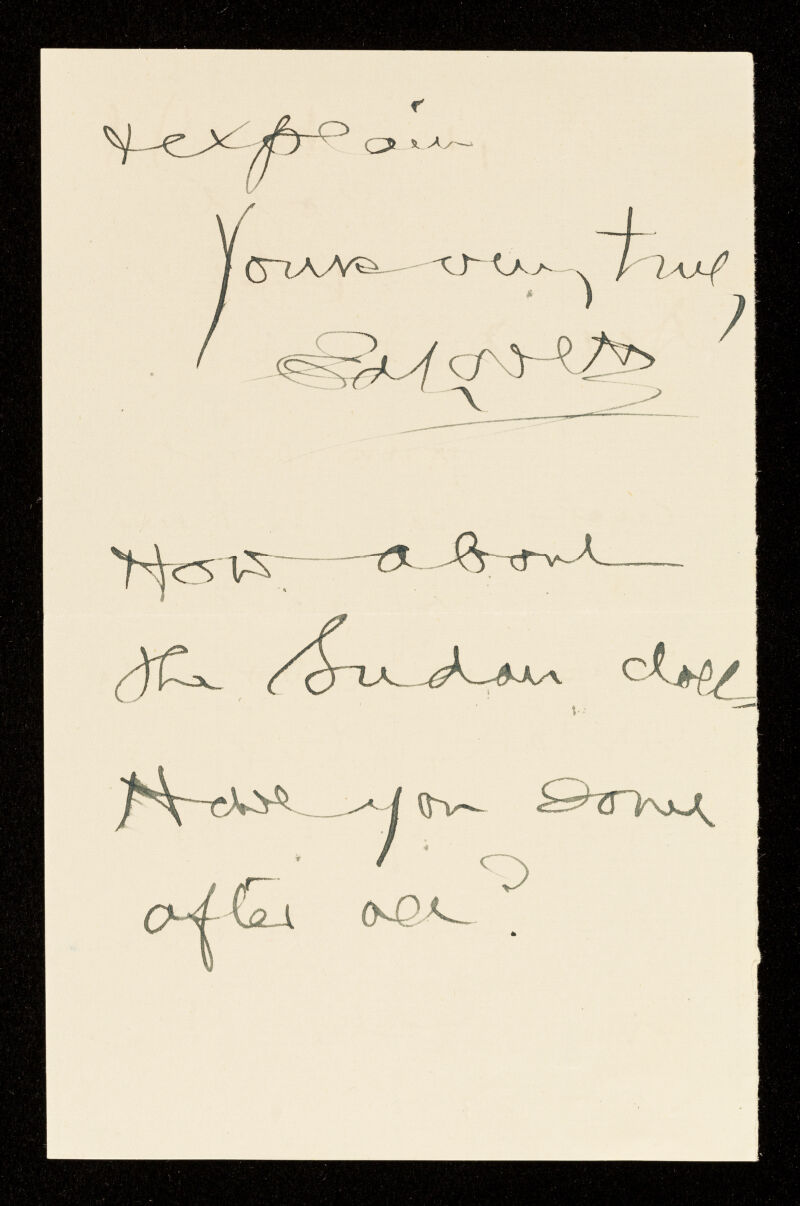 & explain
Yours very truly,
Ed Lovett
How about
the Sudan dolls
Have you some
after all?